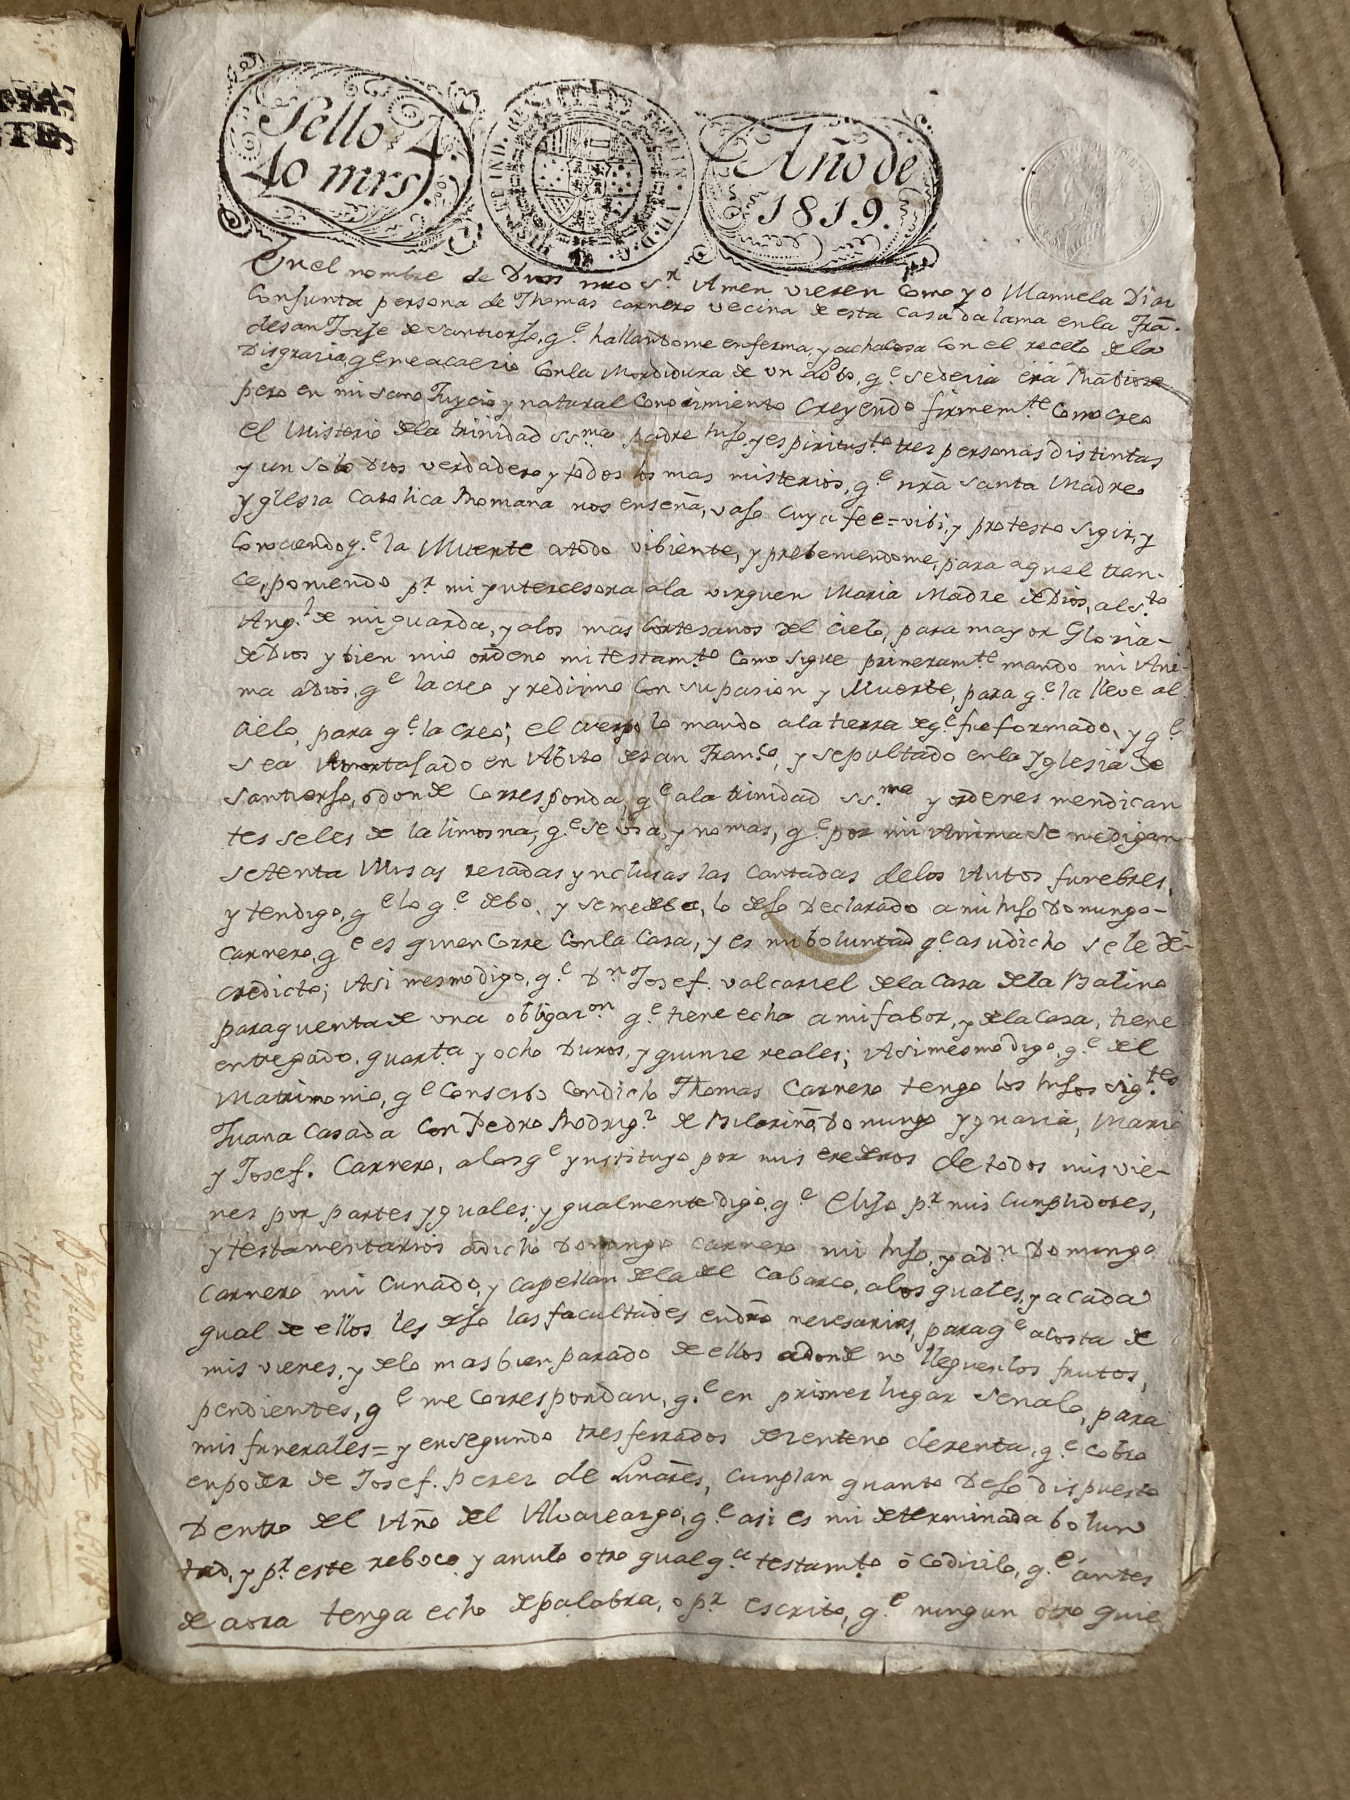 Sello 4.º
40 mrs.
HISP. ET IND. REX FERDIN. VII. D. G.
Año de
1819.
En el nombre de Dios nro S.r Amen vieren como yo Manuela Diaz
Conjunta persona de Thomas Carnero vecina de esta Casa da lama en la Frã.
de san Jorje de Santiorjo, q.e hallandome enferma, y achacosa con el recelo de la
Disgracia, q.e me acaecio Con la Mordidura de un Lobo, q.e se decia era Rabioso
pero en mi sano Juycio y natural Conocimiento Creyendo firmem.te Como creo
el Misterio de la trinidad ss.ma padre hijo, y espiritu s.to tres personas distintas
y un solo Dios verdadero y todos los mas misterios, q.e nrã Santa Madre
Yglesia Catolica Romana nos enseña, vajo cuya fee = vibi, y protesto sigir, y
Conociendo q.e la Muerte a todo vibiente, y prebeniendome, para aquel tran-
ce, poniendo p.r mi yntercesora a la virguen Maria Madre de Dios, al s.to
Ang.l de mi guarda, y a los mas Cortesanos del Cielo, para mayor Gloria-
de Dios y bien mio ordeno mi testam.to Como sigue primeram.te mando mi Ani-
ma a Dios, q.e la creo y redimio Con su pasion y Muerte, para q.e la lleve al
Cielo, para q.e la creo; el cuerpo lo mando a la tierra de q.e fue formado, y q.e
sea Amortajado en Abito de san Fran.co, y sepultado en la Yglesia de
Santiorjo, o donde Corresponda, q.e a la trinidad ss.ma y ordenes mendican
tes se les de la limosna, q.e se usa, y no mas, q.e por mi Anima se me digan
setenta Misas resadas ynclusas las Cantadas de los Autos funebres,
y tendigo, q.e lo q.e debo, y se me deba, lo dejo Declarado a mi hijo Domingo-
Carnero, q.e es quien Corre Con la Casa, y es mi boluntad q.e a su dicho se le de-
credicto; Asi mesmo digo, q.e D.n Josef. valcarcel de la Casa de la Balino
para quenta de una obligacion q.e tiene echa a mi fabor, y de la Casa, tiene
entregado, quarta y ocho Duros, y quince reales; Asimesmo digo, q.e del
Matrimonio, q.e Conserbo Con dicho Thomas Carnero tengo los hijos sig.tes
Juana Casada Con Pedro Rodrig.z de Bilariño, Domingo Ygnacia, Maria
y Josef. Carnero, a los q.e ynstituyo por mis erederos de todos mis vie-
nes por partes yguales; y ygualmente digo, q.e elijo p.r mis Cumplidores,
y testamentarios a dicho Domingo Carnero mi hijo, y a D.n Domingo
Carnero mi Cuñado, y Capellan de la de Cabarco, a los quales, y a cada
qual de ellos les dejo las facultades en dro necesarias, para q.e a costa de
mis vienes, y de lo mas bien parado de ellos adonde no lleguen los frutos,
pendientes, q.e me Correspondan, q.e en primer lugar señalo, para
mis funerales = y en segundo tres ferrados de centeno de renta, q.e cobro
en poder de Josef. perez de Linares, Cunplan quanto Dejo dispuesto
Dentro del Año del Alvaceazgo, q.e asi es mi determinada bolun
tad, y p.r este reboco y anulo otro qualq.a testam.to ó Codicilo, q.e antes
de aora tenga echo de palabra, o p.r escrito, q.e ningun otro quie